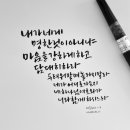 내가네게
명한것이아니냐
마음을강하게하고
담대히하라
두려워말며놀라지말라
네가어디로가든지
네하나님여호와가
너와함께하시느니라